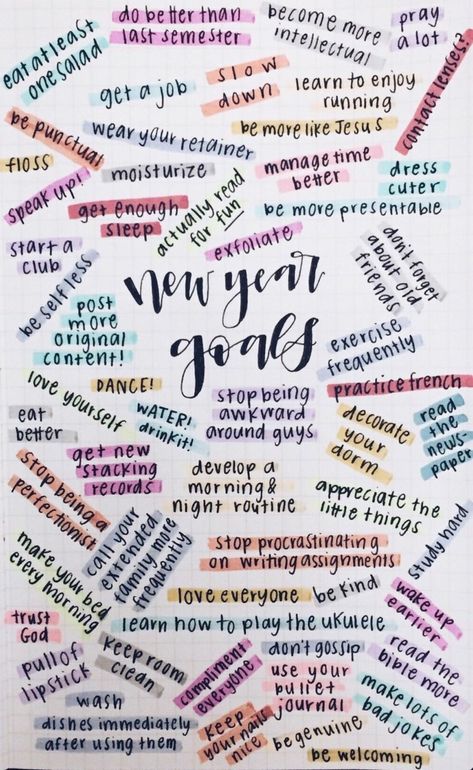 do better than
last semester
become more
intellectual
pray
a lot
eat at least
one salad
get a job
slow
down
learn to enjoy
running
contact lenses?
be punctual
wear your retainer
be more like Jesus
floss
moisturize
manage time
better
dress
cuter
speak up!
get enough
sleep
actually read
for fun
be more presentable
start a
club
exfoliate
don't forget
about old
friends
be self less
new year
goals
post
more
original
content!
exercise
frequently
love yourself
DANCE!
practice french
eat
better
WATER!
drink it!
stop being
awkward
around guys
decorate
your
dorm
read
the
news
paper
get new
stacking
records
stop being a
perfectionist
develop a
morning &
night routine
appreciate the
little things
call your
extended
family more
frequently
study hard
stop procrastinating
on writing assignments
make your bed
every morning
love everyone
be kind
wake up
earlier
trust
God
learn how to play the ukulele
pull of
lipstick
keep room
clean
compliment
everyone
don't gossip
read the
bible more
use your
bullet
journal
make lots of
bad jokes
wash
dishes immediately
after using them
keep
your nails
nice
be genuine
be welcoming